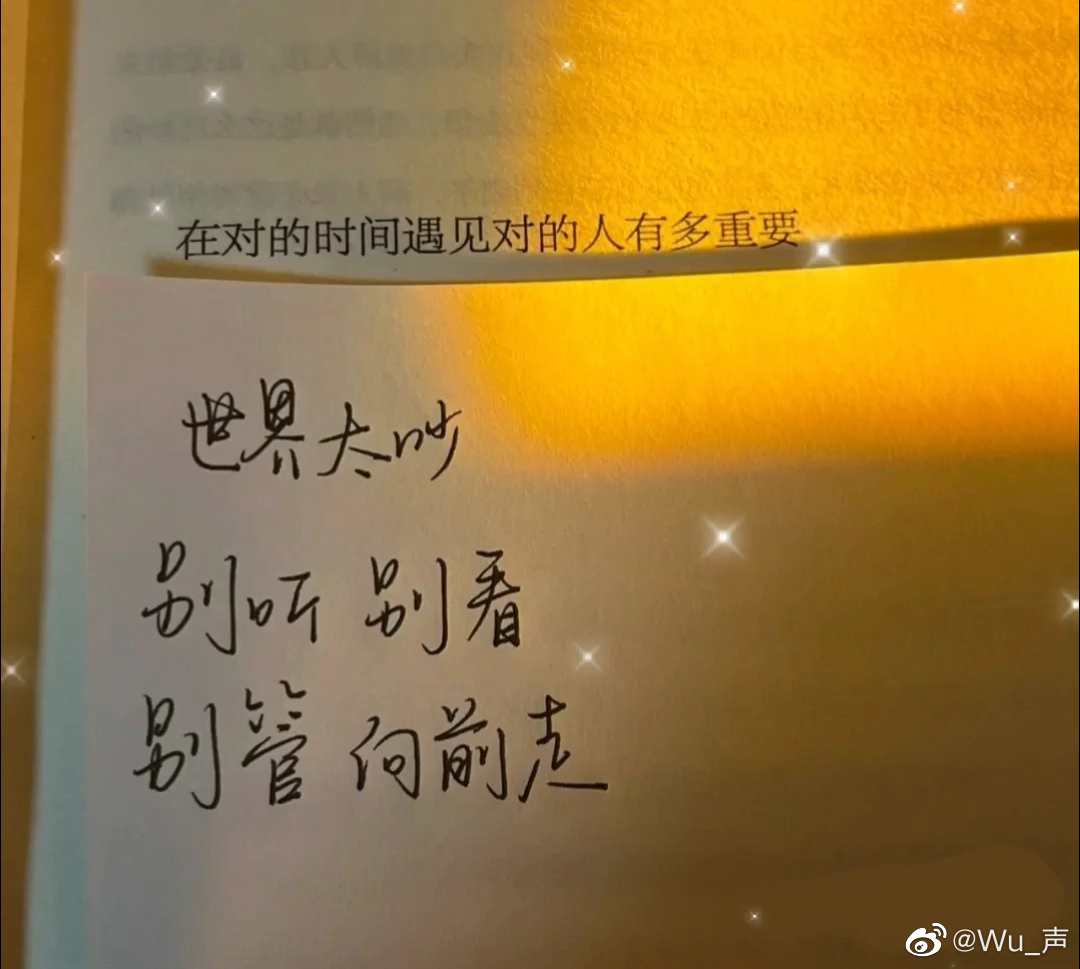 在对的时间遇见对的人有多重要
世界太吵
别听 别看
别管 向前走
@Wu_声